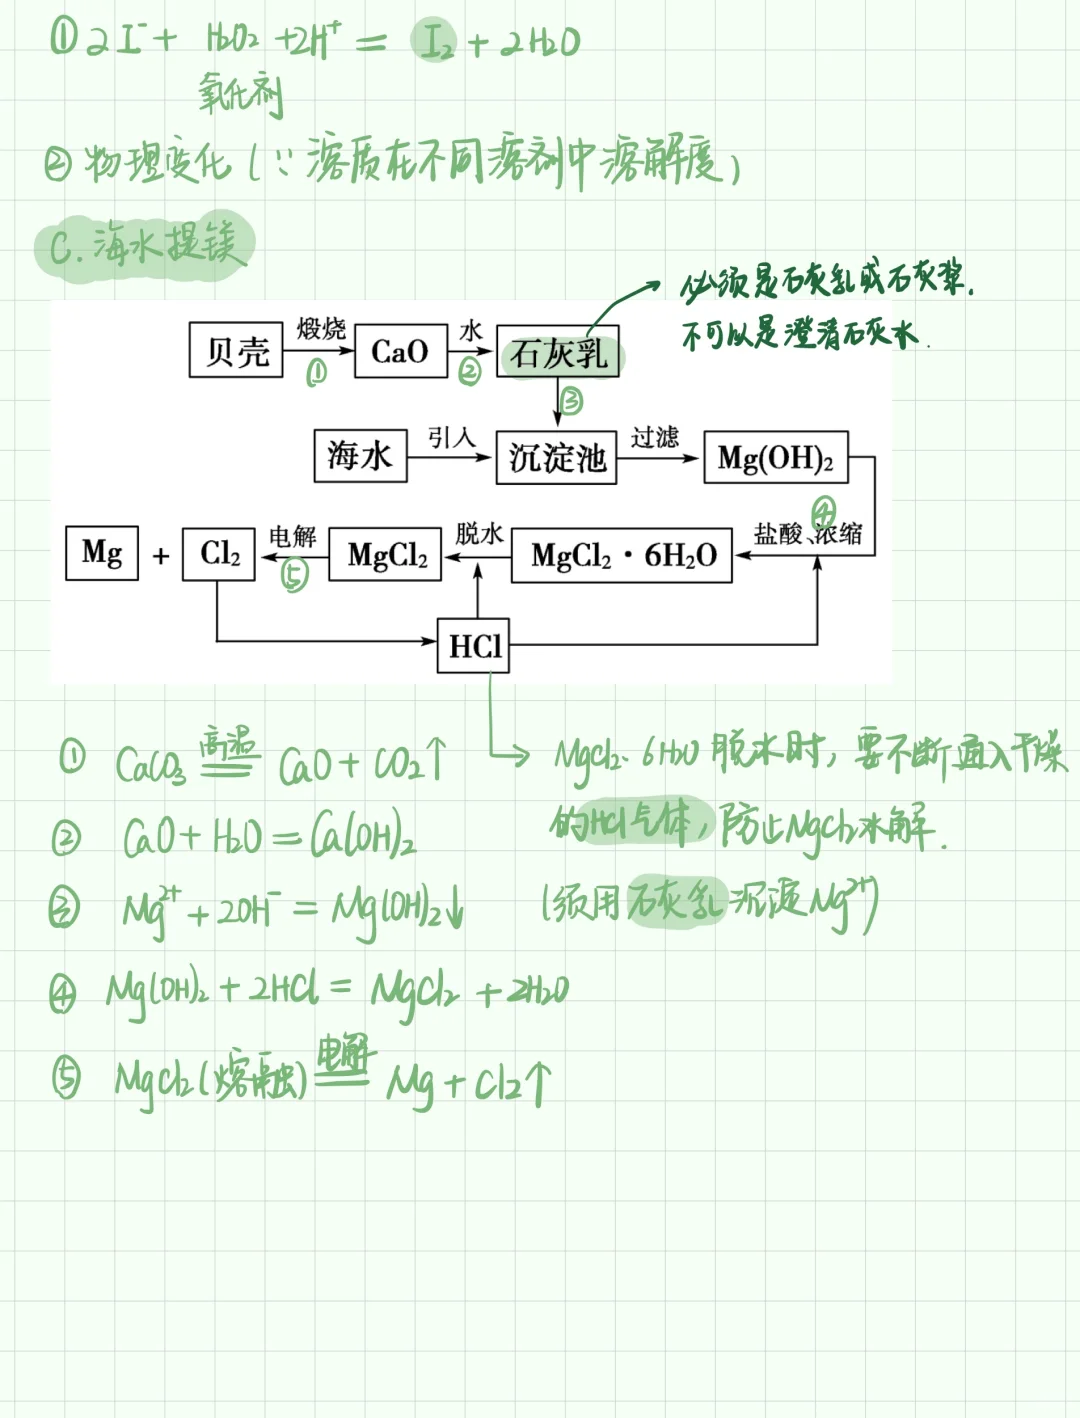 ①2I⁻+ H₂O₂ +2H⁺ = I₂ + 2H₂O
氧化剂
②物理变化(∵溶质在不同溶剂中溶解度)
C.海水提镁
必须是石灰乳或石灰浆.
不可以是澄清石灰水.
贝壳 煅烧 ① CaO 水 ② 石灰乳
③
海水 引入 沉淀池 过滤 Mg(OH)₂
④
Mg + Cl₂ 电解 ⑤ MgCl₂ 脱水 MgCl₂·6H₂O 盐酸、浓缩
HCl
① CaCO₃ 高温 CaO + CO₂↑
MgCl₂·6H₂O 脱水时,要不断通入干燥
的HCl气体,防止MgCl₂水解.
② CaO + H₂O = Ca(OH)₂
③ Mg²⁺ + 2OH⁻ = Mg(OH)₂↓
(须用石灰乳沉淀Mg²⁺)
④ Mg(OH)₂ + 2HCl = MgCl₂ + 2H₂O
⑤ MgCl₂(熔融) 电解 Mg + Cl₂↑